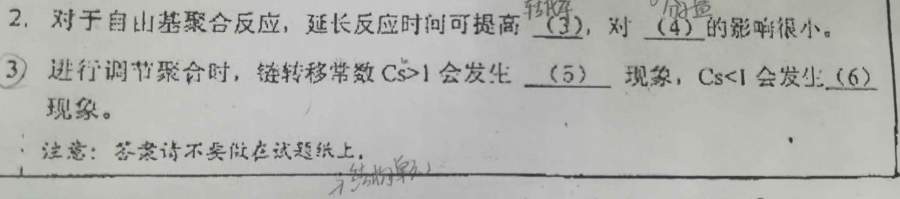 转化率 分子量
2. 对于自由基聚合反应，延长反应时间可提高 (3)，对 (4) 的影响很小。
③ 进行调节聚合时，链转移常数 Cs>1 会发生 (5) 现象，Cs<1 会发生 (6)
现象。
注意：答案请不要做在试题纸上。
结构单元